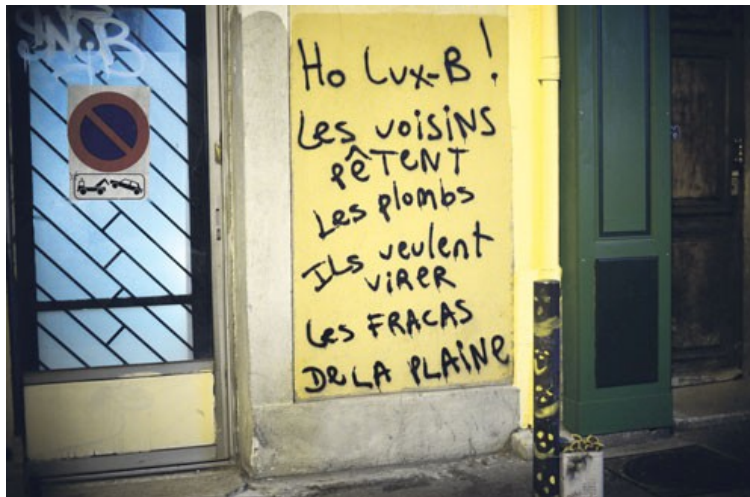 Ho Lux-B !
Les voisins
pêTENT
Les plombs
ILs veulent
viRER
Les FRACAS
De LA PLAiNe